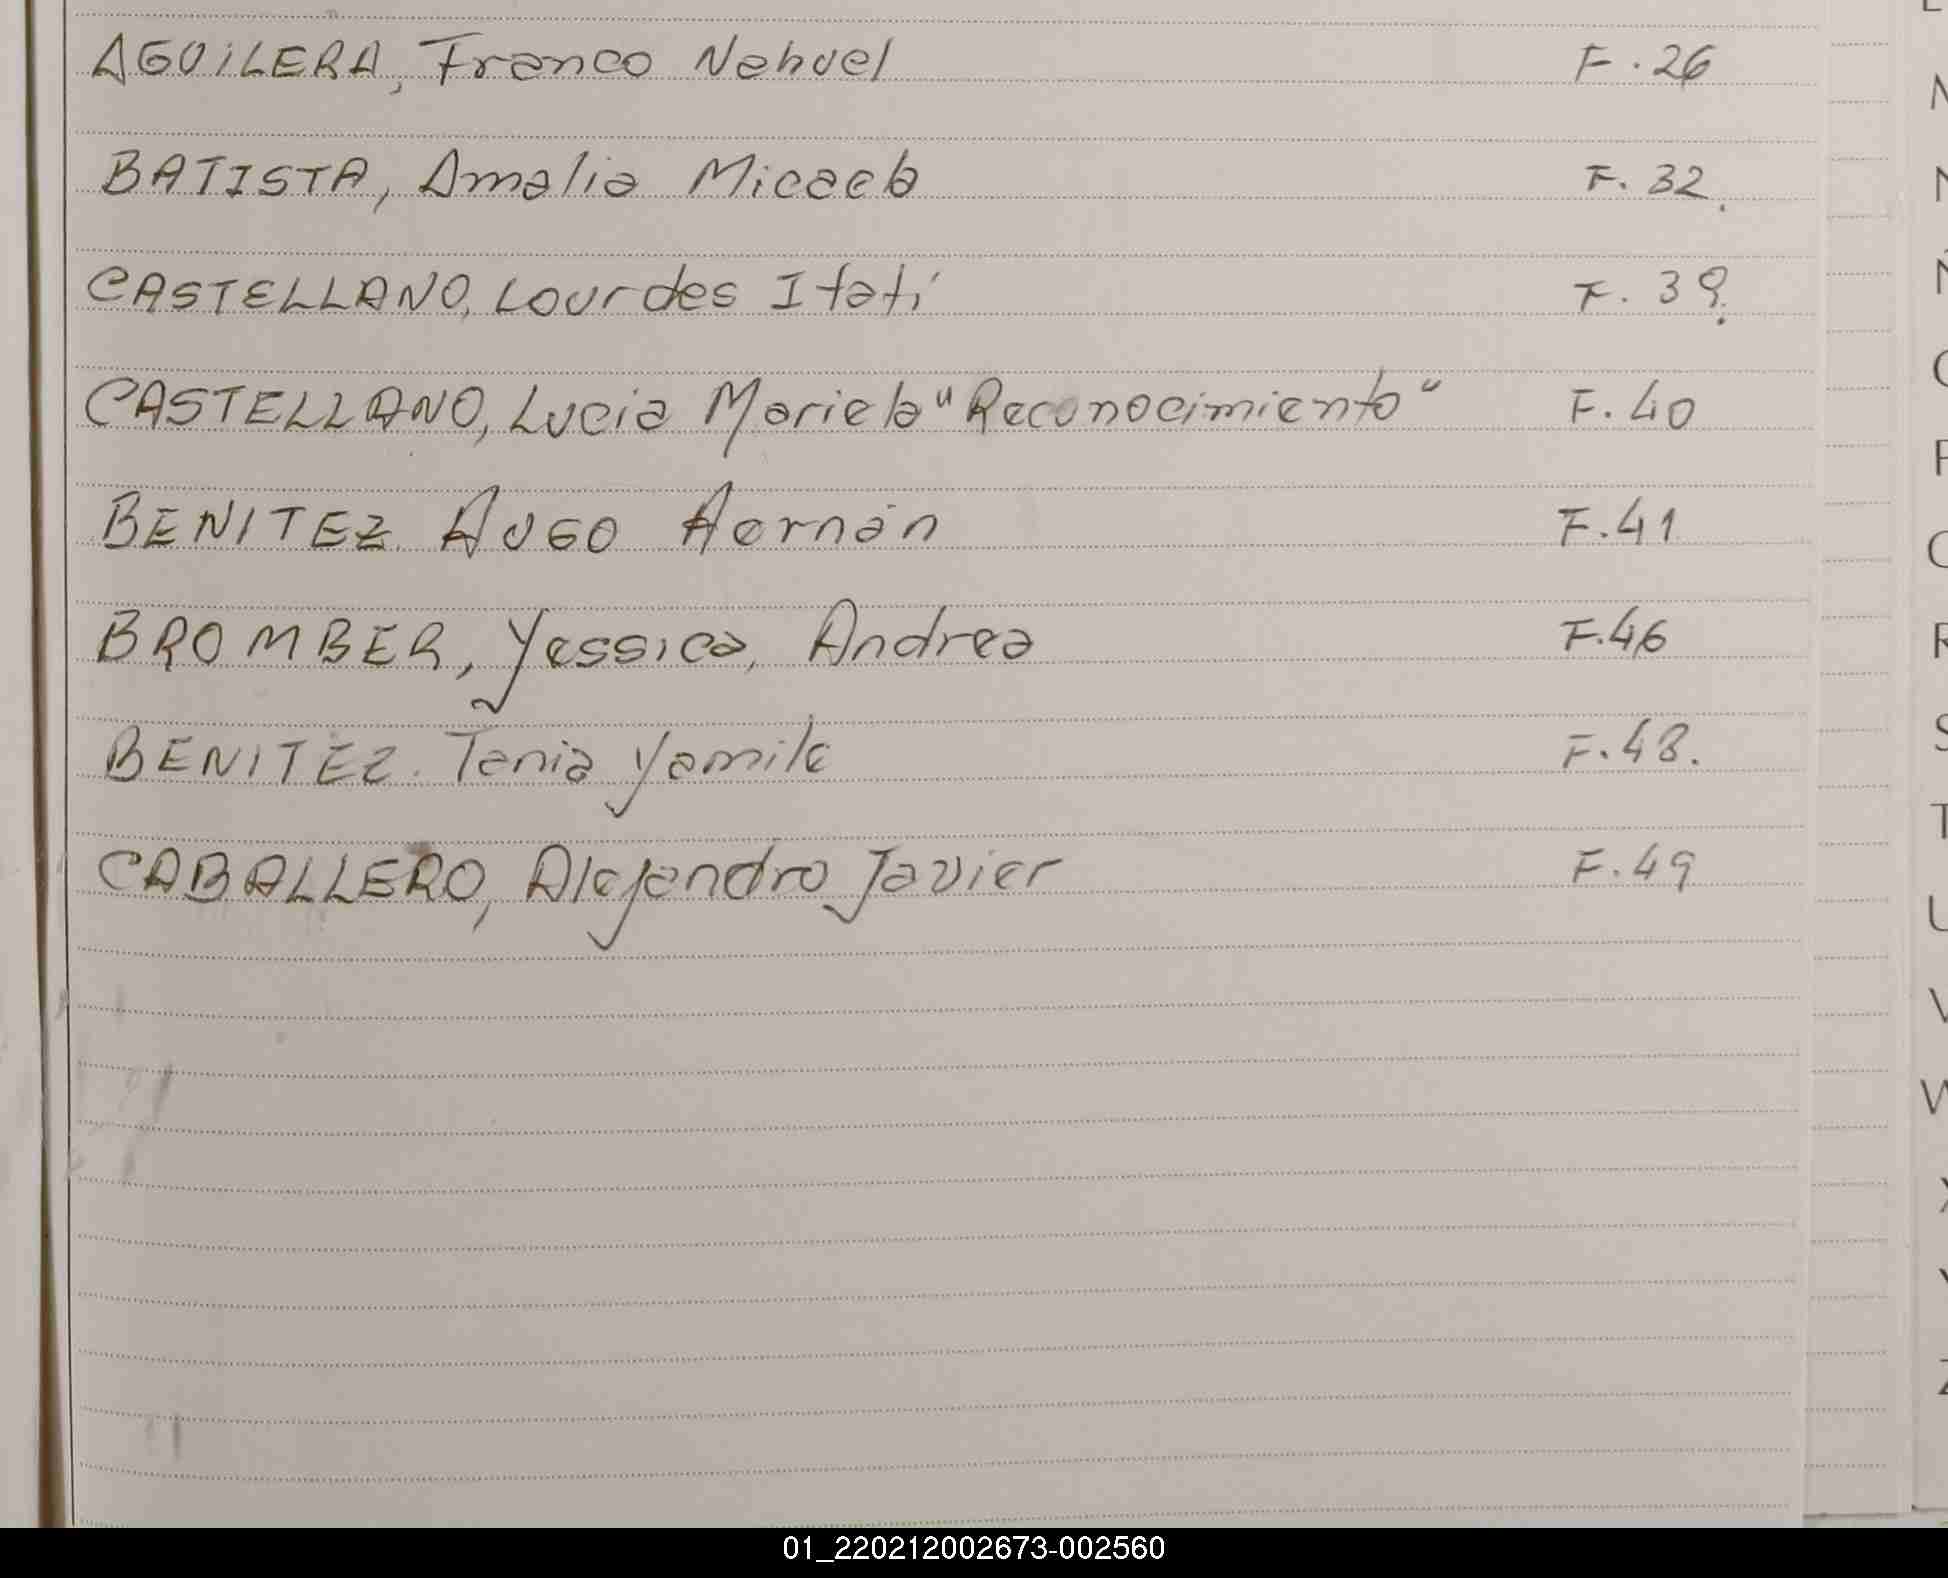 AGUILERA, Franco Nahuel F. 26
BATISTA, Amalia Micaela F. 32.
CASTELLANO, Lourdes Itatí F. 39.
CASTELLANO, Lucia Mariela "Reconocimiento" F. 40
BENITEZ Hugo Hernán F. 41
BROMBER, Yessica, Andrea F. 46
BENITEZ. Tania Yamile F. 48.
CABALLERO, Alejandro Javier F. 49
R
S
T
U
V
W
X
Y
Z
01_220212002673-002560